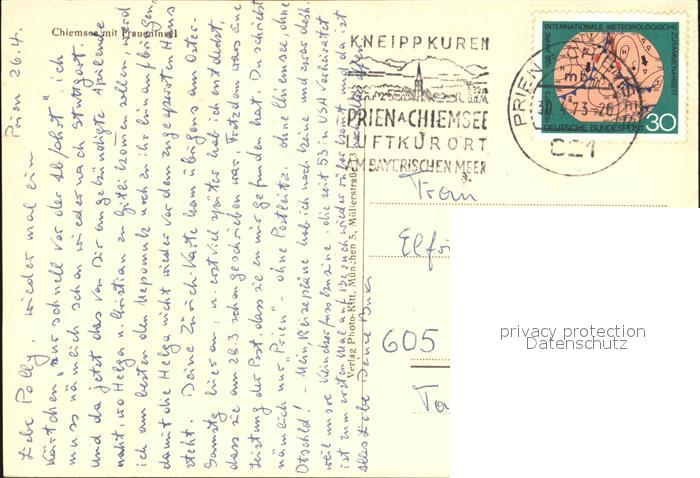 Chiemsee mit Fraueninsel
Prien 26.4.
Liebe Polly, wieder mal ein
Kärtchen "nur schnell vor der Abfahrt" ich
muss nämlich schon wieder nach Stuttgart.
Und da jetzt das von Dir angekündigte Aprilende
naht, wo Helga u. Christian zu Gitti kommen sollen, werd
ich am besten den Nepomuk noch zu ihr hinaufbringen,
damit die Helga nicht wieder vor dem zugesperrten Haus
steht. Deine Zürich-Karte kam übrigens am Oster-
Samstag hier an, u. erst viel später hab ich entdeckt,
dass sie am 26.3 schon geschrieben war. Trotzdem war's eine
Leistung der Post, dass sie zu mir gefunden hat. Du schriebst
nämlich nur "Prien" - ohne Postleitz., ohne Chiemsee, ohne
Ortschld! - Mein Reisepläne hab ich noch keine und zwar desh.
weil unsre Cousine, die seit 53 in USA verheiratet
ist zum ersten Mal auf Besuch wieder rüberkommt und da ist
alles Liebe Deine
Verlag Photo-Kitt, München 5, Müllerstraße
KNEIPPKUREN
PRIEN A CHIEMSEE
LUFTKURORT
AM BAYERISCHEN MEER
PRIEN
30.4.73-20
821
100 JAHRE INTERNATIONALE METEOROLOGISCHE ZUSAMMENARBEIT
1873 1973
DEUTSCHE BUNDESPOST 30
Frau
Elfr
605
privacy protection
Datenschutz